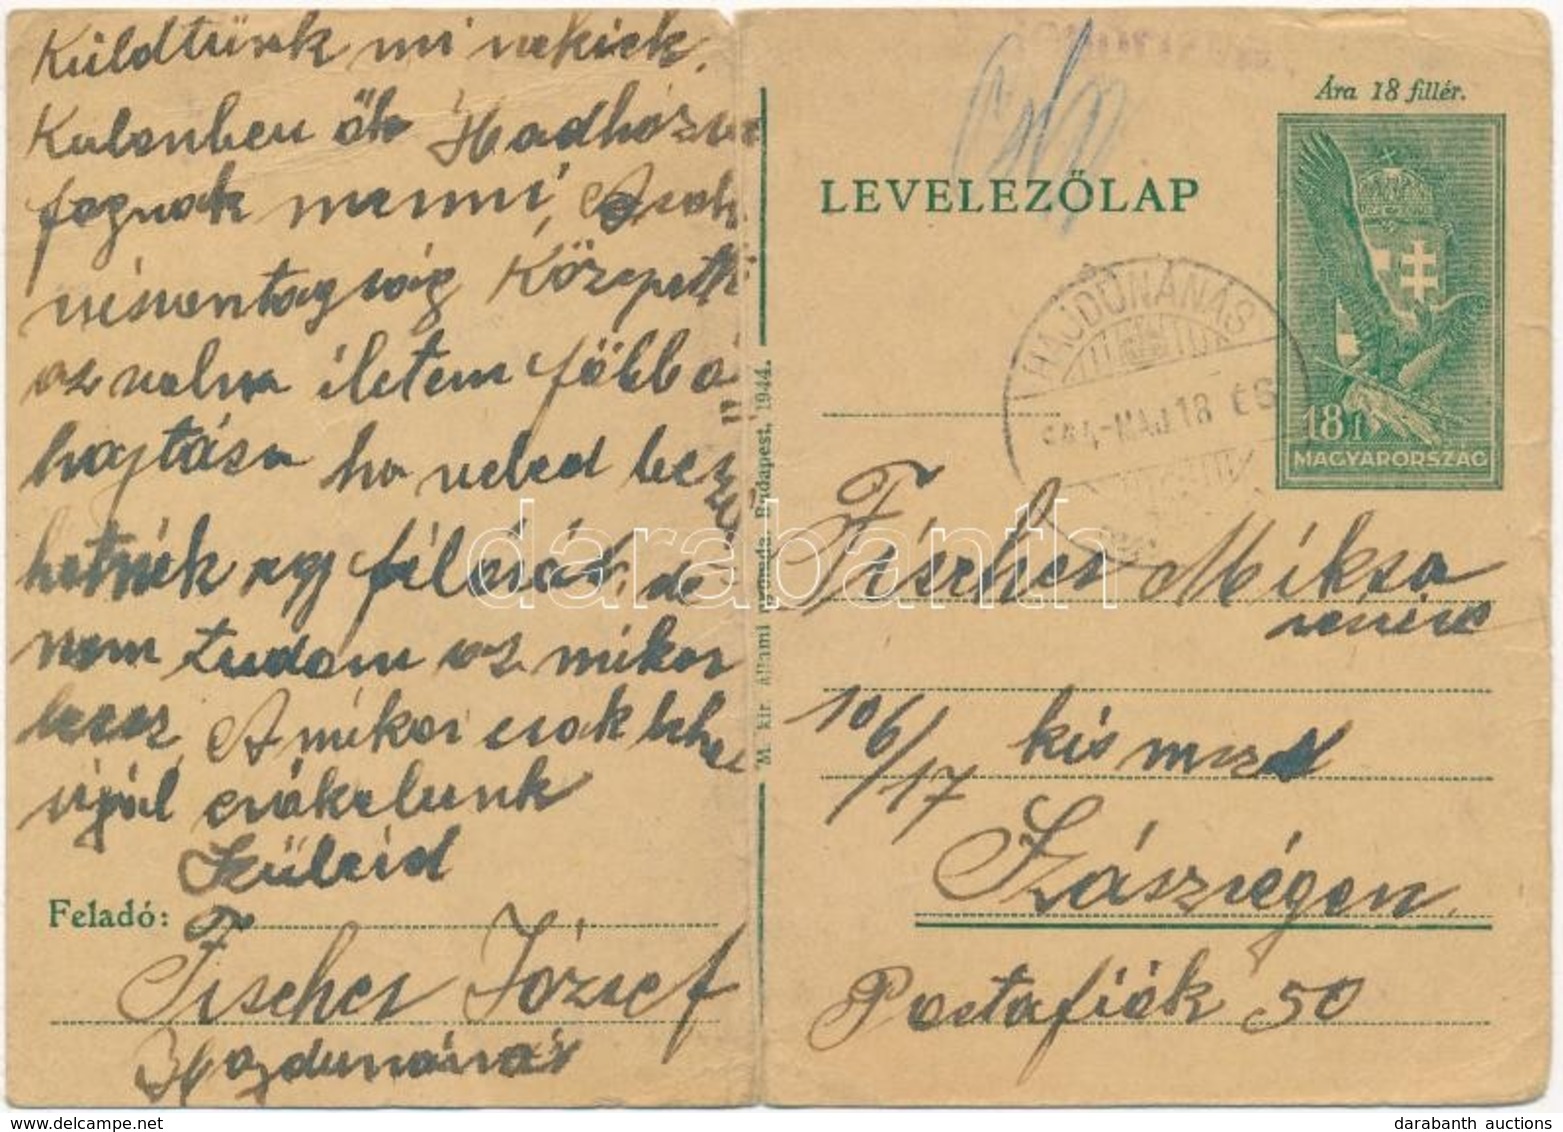 Küldtünk mi nekiek.
Kulonben ők Hadházra
fognak menni, Azok
Középett
az volna életem főbb ó
hajtása ha veled beszél
hetnék egy félórát, de
nem tudom az mikor
lesz, A mikor csak lehet
irjál csókolunk
Szüleid
Feladó:
Fischer József
Hajdunánás
M. kir. állami nyomda, Budapest, 1944.
Ára 18 fillér.
LEVELEZŐLAP
HAJDÚNÁNÁS
944.MÁJ 18
18 f
MAGYARORSZÁG
Fischer Miksa
részére
106/17 kis msz
Szászrégen.
Postafiók 50
darabanth
darabanth auctions